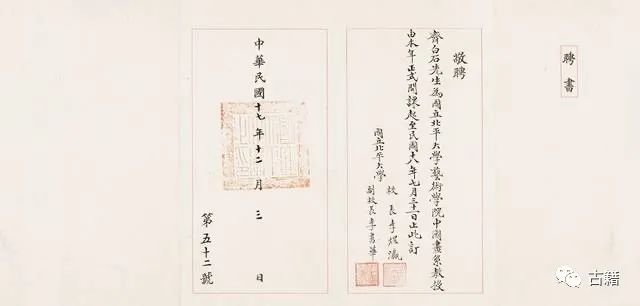 聘書
敬聘
齊白石先生為國立北平大學藝術學院中國畫系教授
由本年正式開課起至民國十八年七月三十一日止此訂
國立北平大學
校長李煜瀛
副校長李書華
中華民國十七年十二月三日
第五十二號
古籍